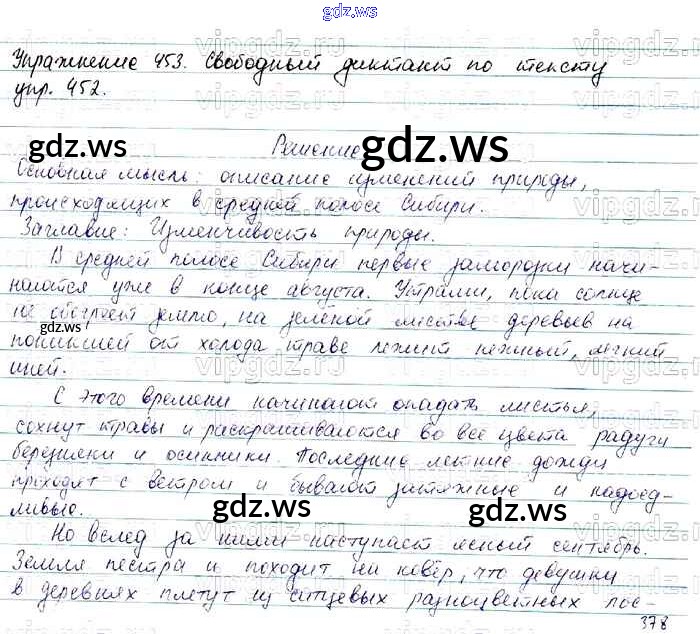 gdz.ws
Упражнение 453. Свободный диктант по тексту
упр. 452.
gdz.ws
gdz.ws
Решение
Основная мысль: описание изменений природы,
происходящих в средней полосе Сибири.
Заглавие: Изменчивость природы.
В средней полосе Сибири первые заморозки начи-
наются уже в конце августа. Утрами, пока солнце
не обогреет землю, на зелёной листве деревьев на
поникшей от холода траве лежит нежный, мягкий
иней.
gdz.ws
gdz.ws
С этого времени начинают опадать листья,
сохнут травы и раскрашиваются во все цвета радуги
березняки и осинники. Последние летние дожди
проходят с ветром и бывают затяжные и надоед-
ливые.
gdz.ws
gdz.ws
Но вслед за ними наступает ясный сентябрь.
Земля пестра и походит на ковёр, что девушки
в деревнях плетут из ситцевых разноцветных лос-
378